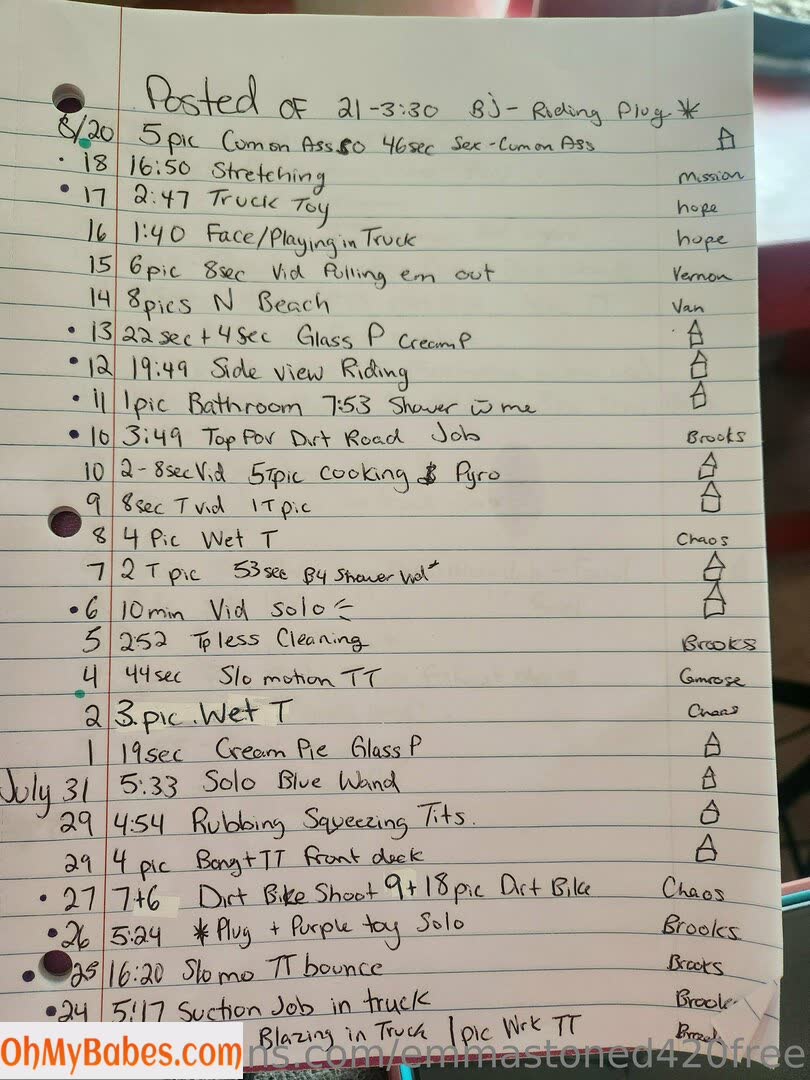 Posted OF 21-3:30 BJ - Riding Plug *
8/20 5pic Cum on Ass 50 46sec Sex-Cum on Ass
18 16:50 Stretching Mission
17 2:47 Truck Toy hope
16 1:40 Face/Playing in Truck hope
15 6pic 8sec Vid Pulling em out Vernon
14 8pics N Beach Van
13 22sec + 4sec Glass P CreamP
12 19:49 Side view Riding
11 1pic Bathroom 7:53 Shower w me
10 3:49 Top Pov Dirt Road Job Brooks
10 2-8sec Vid 5Tpic cooking & Pyro
9 8sec T vid 1T pic
8 4 Pic Wet T Chaos
7 2 T pic 53sec B4 Shower Vid*
6 10min Vid Solo
5 2:52 Tpless Cleaning Brooks
4 44sec Slo motion TT Camrose
2 3.pic.Wet T Chaos
1 19sec Cream Pie Glass P
July 31 5:33 Solo Blue Wand
29 4:54 Rubbing Squeezing Tits.
29 4 pic Bong+TT front deck
27 7+6 Dirt Bike Shoot 9+18pic Dirt Bike Chaos
26 5:24 *Plug + Purple toy Solo Brooks
25 16:20 Slo mo TT bounce Brooks
24 5:17 Suction Job in truck Brooks
Blazing in Truck 1pic Wrk TT
OhMyBabes.com
ns.com/emmastoned420free